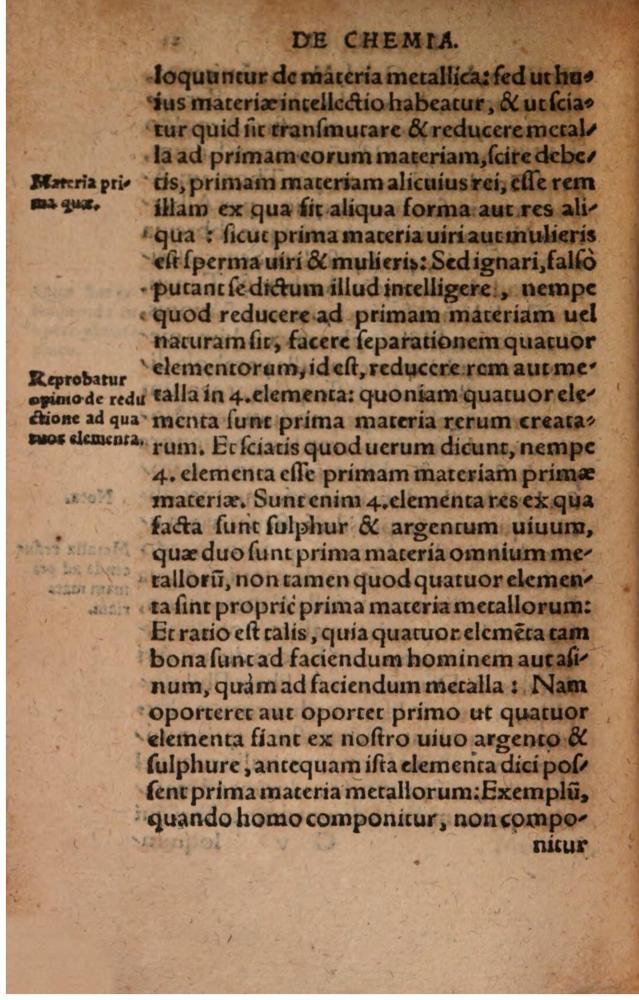 DE CHEMIA.
loquuntur de materia metallica: sed ut hu-
ius materiæ intellectio habeatur, & ut scia-
tur quid sit transmutare & reducere metal-
la ad primam eorum materiam, scire debe-
Materia pri-
ma quæ.
tis, primam materiam alicuius rei, esse rem
illam ex qua fit aliqua forma aut res ali-
qua : sicut prima materia uiri aut mulieris
est sperma uiri & mulieris: Sed ignari, falsò
putant se dictum illud intelligere , nempe
quod reducere ad primam materiam uel
naturam sit, facere separationem quatuor
elementorum, id est, reducere rem aut me-
Reprobatur
opinio de redu
ctione ad qua
tuor elementa.
talla in 4. elementa: quoniam quatuor ele-
menta sunt prima materia rerum creata-
rum. Et sciatis quod uerum dicunt, nempe
4. elementa esse primam materiam primæ
materiæ. Sunt enim 4. elementa res ex qua
facta sunt sulphur & argentum uiuum,
quæ duo sunt prima materia omnium me-
tallorū, non tamen quod quatuor elemen-
ta sint propriè prima materia metallorum:
Et ratio est talis, quia quatuor elemēta tam
bona sunt ad faciendum hominem aut asi-
num, quàm ad faciendum metalla : Nam
oporteret aut oportet primo ut quatuor
elementa fiant ex nostro uiuo argento &
sulphure, antequam ista elementa dici pos-
sent prima materia metallorum: Exemplū,
quando homo componitur, non compo-
nitur